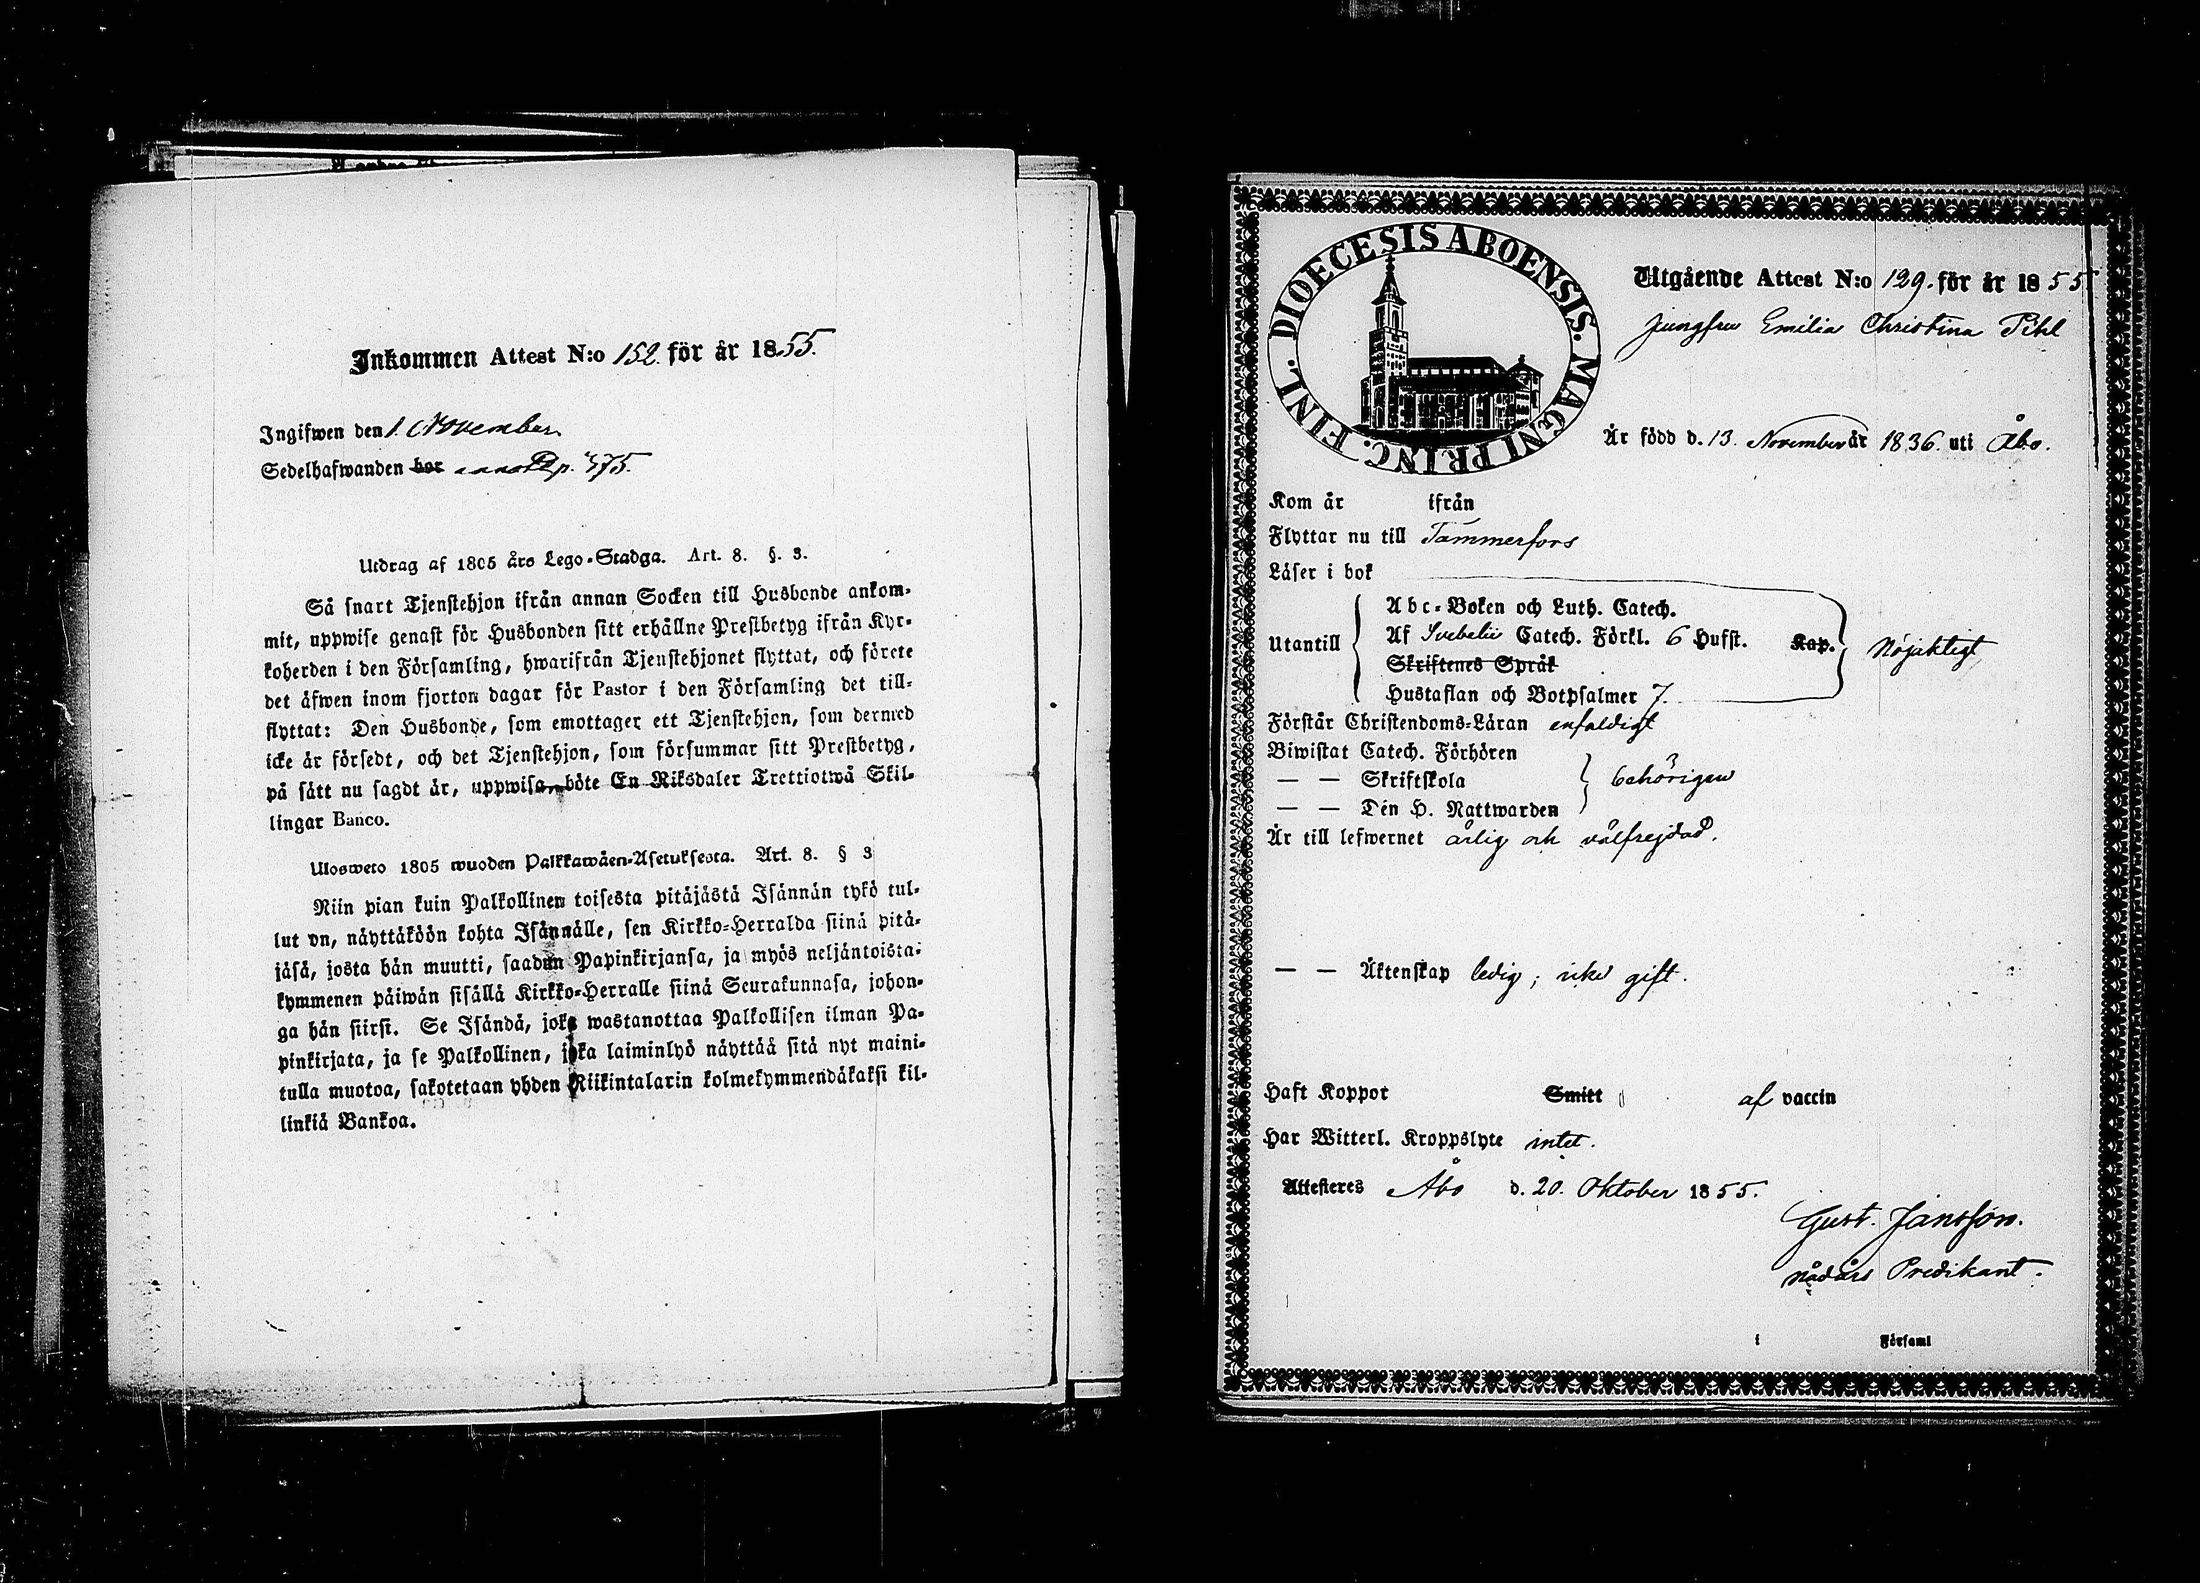 Inkommen Attest N:o 152. för år 1855.
Ingifwen den 1. November.
Sedelhafwanden bor p. 475.
Utdrag af 1805 års Lego-Stadga. Art. 8. §. 3.
Så snart Tjenstehjon ifrån annan Socken till Husbonde ankom-
mit, uppwise genast för Husbonden sitt erhållne Prestbetyg ifrån Kyr-
koherden i den Församling, hwarifrån Tjenstehjonet flyttat, och förete
det äfwen inom fjorton dagar för Pastor i den Församling det till-
flyttat: Den Husbonde, som emottager ett Tjenstehjon, som dermed
icke är försedt, och det Tjenstehjon, som försummar sitt Prestbetyg,
på sätt nu sagdt är, uppwisa, böte En Riksdaler Trettiotwå Skil-
lingar Banco.
Ulosweto 1805 wuoden Palkkawäen-Asetuksesta. Art. 8. § 3
Niin pian kuin Palkollinen toisesta pitäjästä Isännän tykö tul-
lut on, näyttäköön kohta Isännälle, sen Kirkko-Herralda siinä pitä-
jäsä, josta hän muutti, saadun Papinkirjansa, ja myös neljäntoista-
kymmenen päiwän sisällä Kirkko-Herralle siinä Seurakunnasa, johon-
ga hän siirsi. Se Isändä, joka wastanottaa Palkollisen ilman Pa-
pinkirjata, ja se Palkollinen, joka laiminlyö näyttää sitä nyt maini-
tulla muotoa, sakotetaan yhden Riikintalarin kolmekymmendäkaksi kil-
linkiä Bankoa.
DIOECESIS ABOENSIS. MAGNI PRINC. FINL.
Utgående Attest N:o 129. för år 1855
Jungfru Emilia Christina Pihl
Är född d. 13. November år 1836. uti Åbo.
Kom år ifrån
Flyttar nu till Tammerfors
Läser i bok
Abc-Boken och Luth. Catech.
Utantill Af Svebelii Catech. Förkl. 6 Hufst. Kap. Nöjaktigt
Skriftenes Språk
Hustaflan och Botpsalmer 7.
Förstår Christendoms-Läran enfaldigt
Biwistat Catech. Förhören
— — Skriftskola behörigen
— — Den H. Nattwarden
Är till lefwernet ärlig och välfrejdad.
— — Äktenskap ledig; icke gift.
Haft Koppor Smitt af vaccin
Har Witterl. Kroppslyte intet.
Attesteres Åbo d. 20. Oktober 1855.
Gust. Jansson.
nådårs Predikant.
i Församl